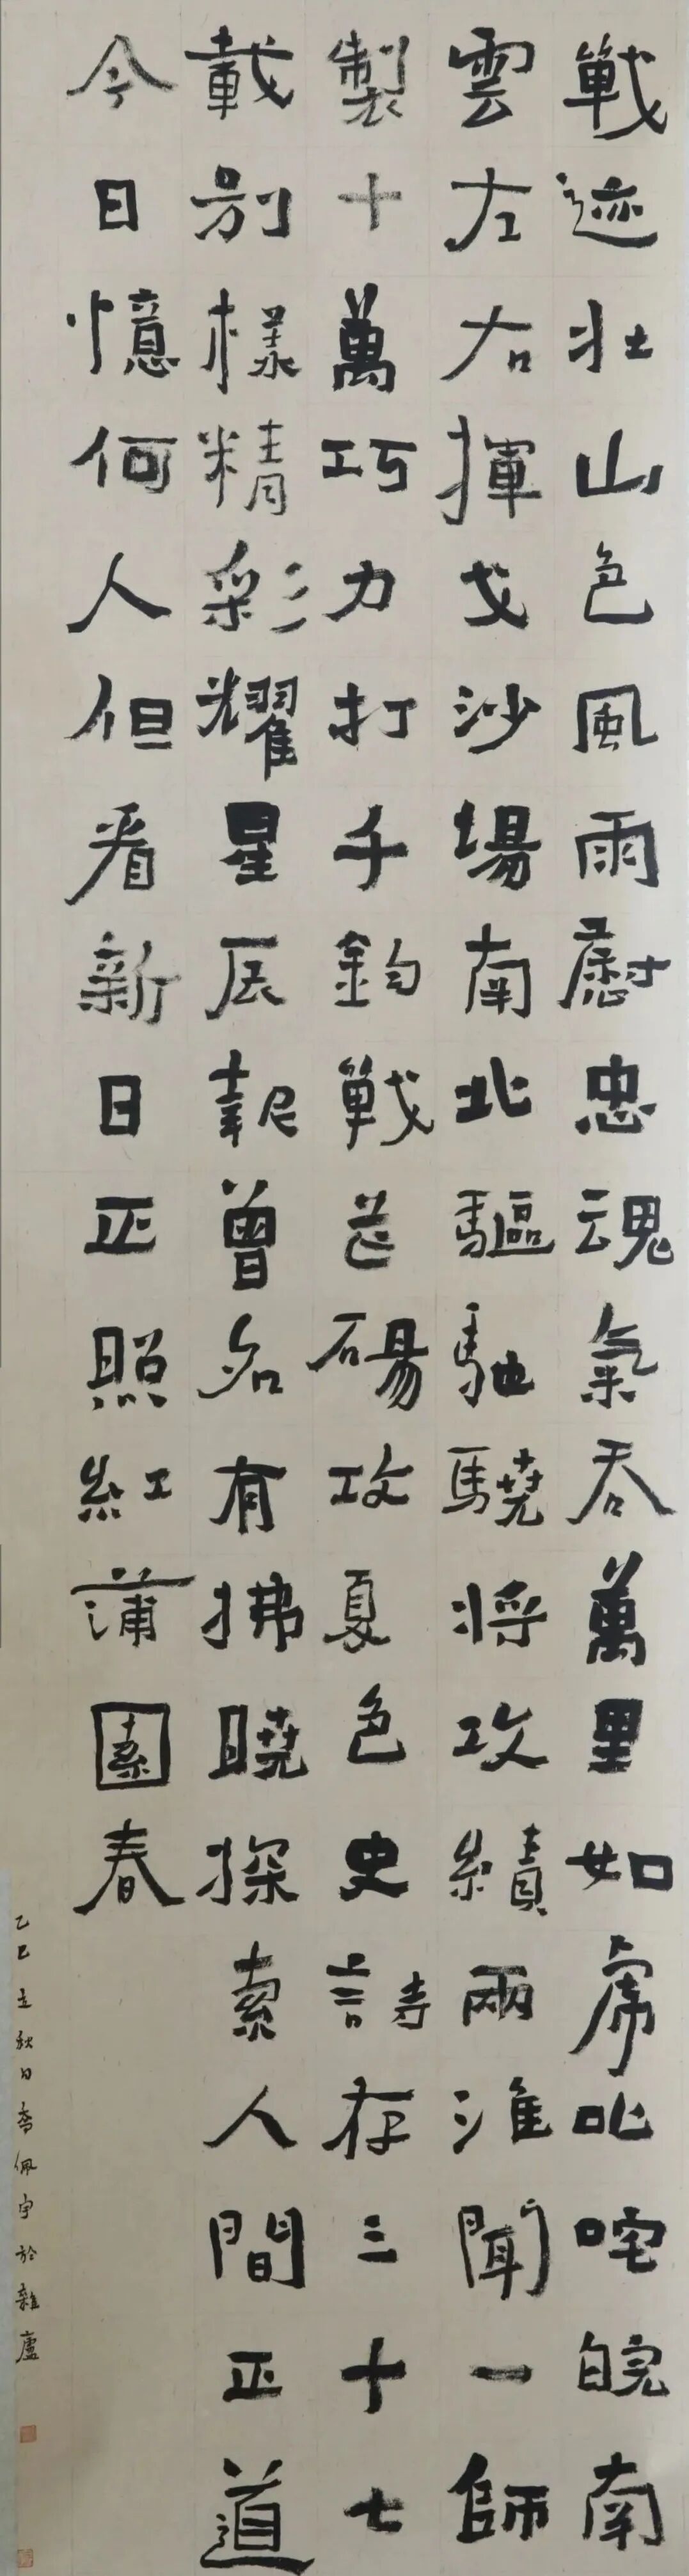 戰迹壯山色風雨慰忠魂氣吞萬里如虎叱咤皖南
雲左右揮戈沙場南北驅馳驍將攻績兩淮聞一師
製十萬巧力打千鈞戰芒碭攻夏邑史詩存三十七
載別樣精彩耀星辰報曾名有拂曉探索人間正道
今日憶何人但看新日正照紅蒲園春
乙巳立秋日喬佩宇於雜廬